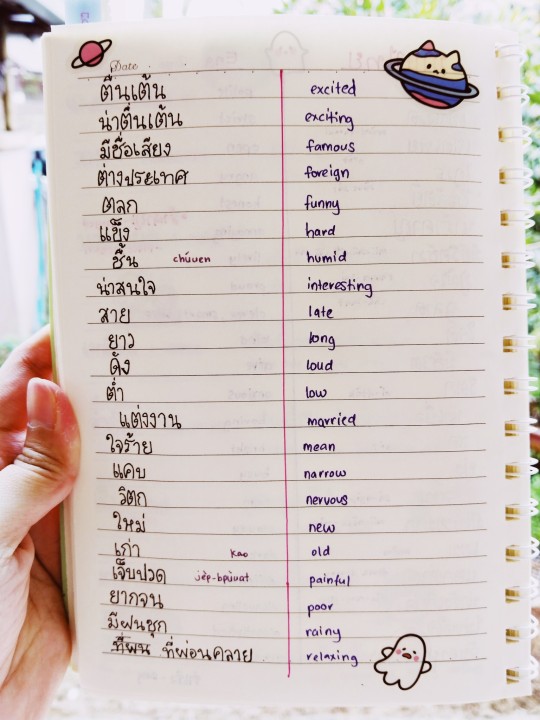 Date
ตื่นเต้น excited
น่าตื่นเต้น exciting
มีชื่อเสียง famous
ต่างประเทศ foreign
ตลก funny
แข็ง hard
ชื้น chúuen humid
น่าสนใจ interesting
สาย late
ยาว long
ดัง loud
ต่ำ low
แต่งงาน married
ใจร้าย mean
แคบ narrow
วิตก nervous
ใหม่ new
เก่า kao old
เจ็บปวด jèp-bpùuat painful
ยากจน poor
มีฝนชุก rainy
ที่ผ่อนคลาย relaxing